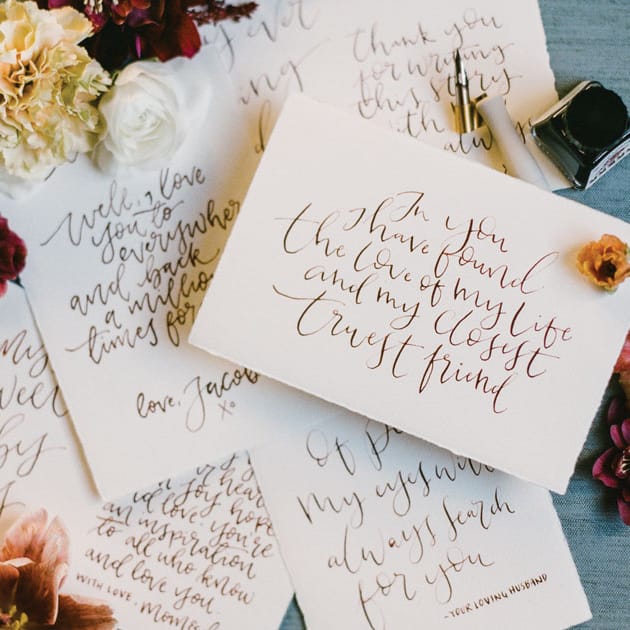 thank you
for writing
this story
with always
In you
I have found
the love of my life
and my closest
truest friend
Well, I love
you to
everywhere
and back
a million
times for
love, Jacob
xo
my
well
by
and love. you're
an inspiration
to all who know
and love you.
WITH LOVE,
my eyes will
always search
for you
-YOUR LOVING HUSBAND